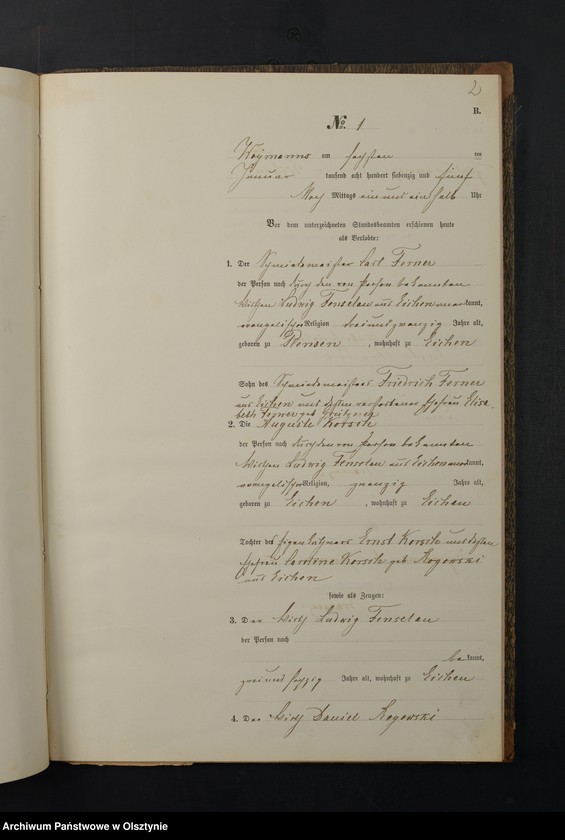 2
B.
No. 1
Woymanns am sechsten ten
Januar tausend acht hundert siebenzig und fünf
Nach Mittags ein und ein halb Uhr
Vor dem unterzeichneten Standesbeamten erschienen heute
als Verlobte:
1. Der Schmiedemeister Carl Forner
der Person nach durch den von Person bekannten
Wirthen Ludwig Fenselau aus Eichen kannt,
evangelischer Religion dreiundzwanzig Jahre alt,
geboren zu , wohnhaft zu Eichen
Sohn des Schmiedemeisters Friedrich Forner
aus Eichen und dessen verstorbener Ehefrau Elisa
beth Forner geb.
2. Die Auguste Korsch
der Person nach durch den von Person bekannten
Wirthen Ludwig Fenselau aus Eichen kannt,
evangelischer Religion, zwanzig Jahre alt,
geboren zu Eichen , wohnhaft zu Eichen
Tochter des Eigenkäthners Ernst Korsch und dessen
Ehefrau Caroline Korsch geb. Rogowski
aus Eichen
sowie als Zeugen:
3. Der Wirth Ludwig Fenselau
der Person nach
be kannt,
zwei und sechzig Jahre alt, wohnhaft zu Eichen
4. Der Wirth Daniel Rogowski
Archiwum Państwowe w Olsztynie